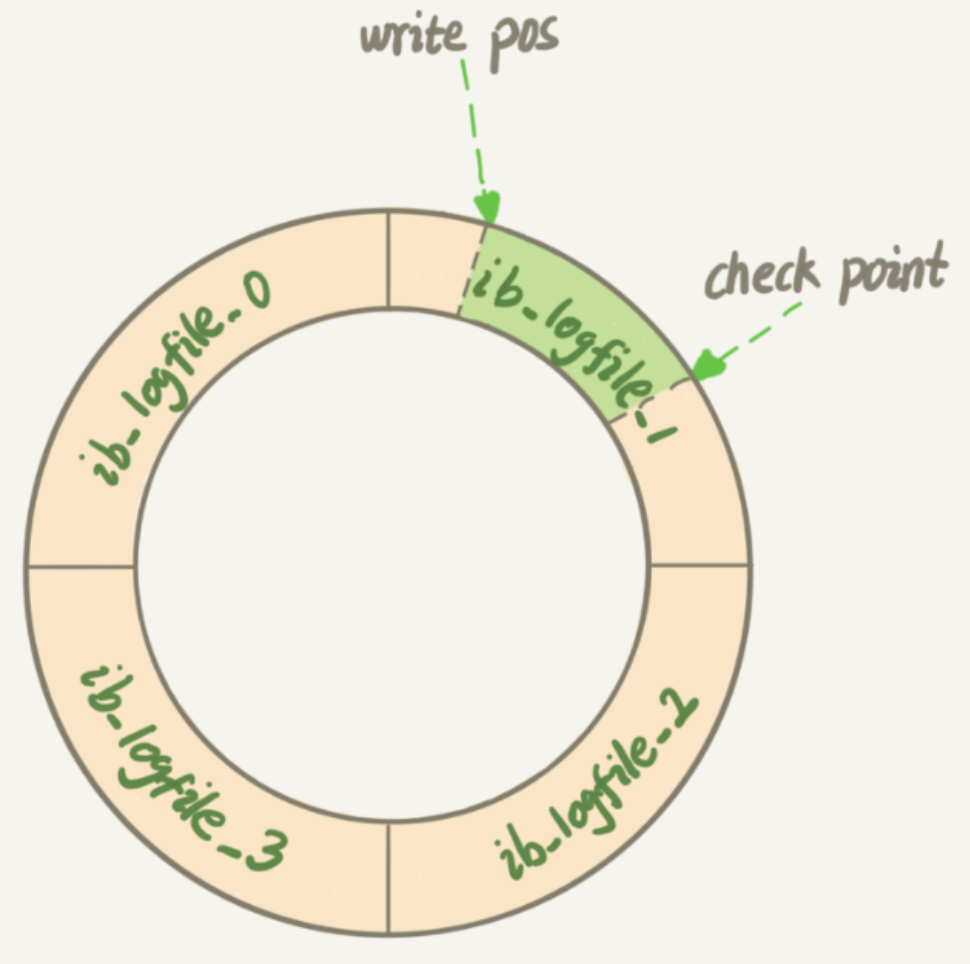 write pos
check point
ib_logfile_0
ib_logfile_1
ib_logfile_2
ib_logfile_3